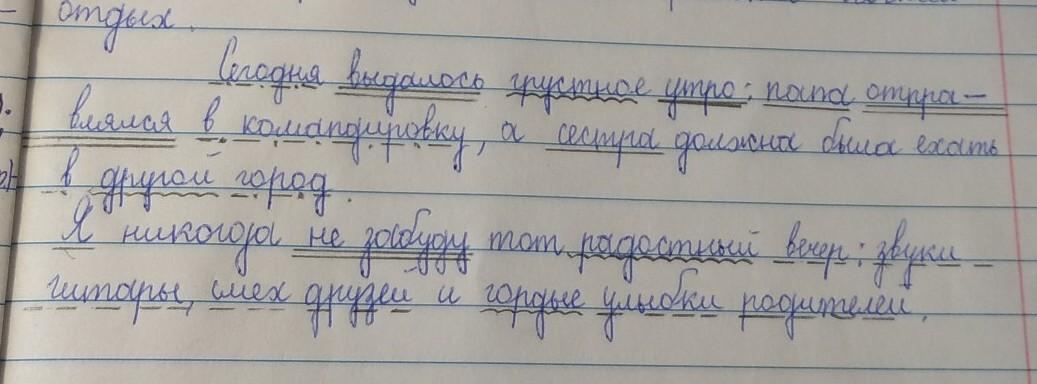 отдых.
Сегодня выдалось грустное утро: папа отпра-
влялся в командировку, а сестра должна была ехать
в другой город.
Я никогда не забуду тот радостный вечер: звуки
гитары, смех друзей и гордые улыбки родителей.